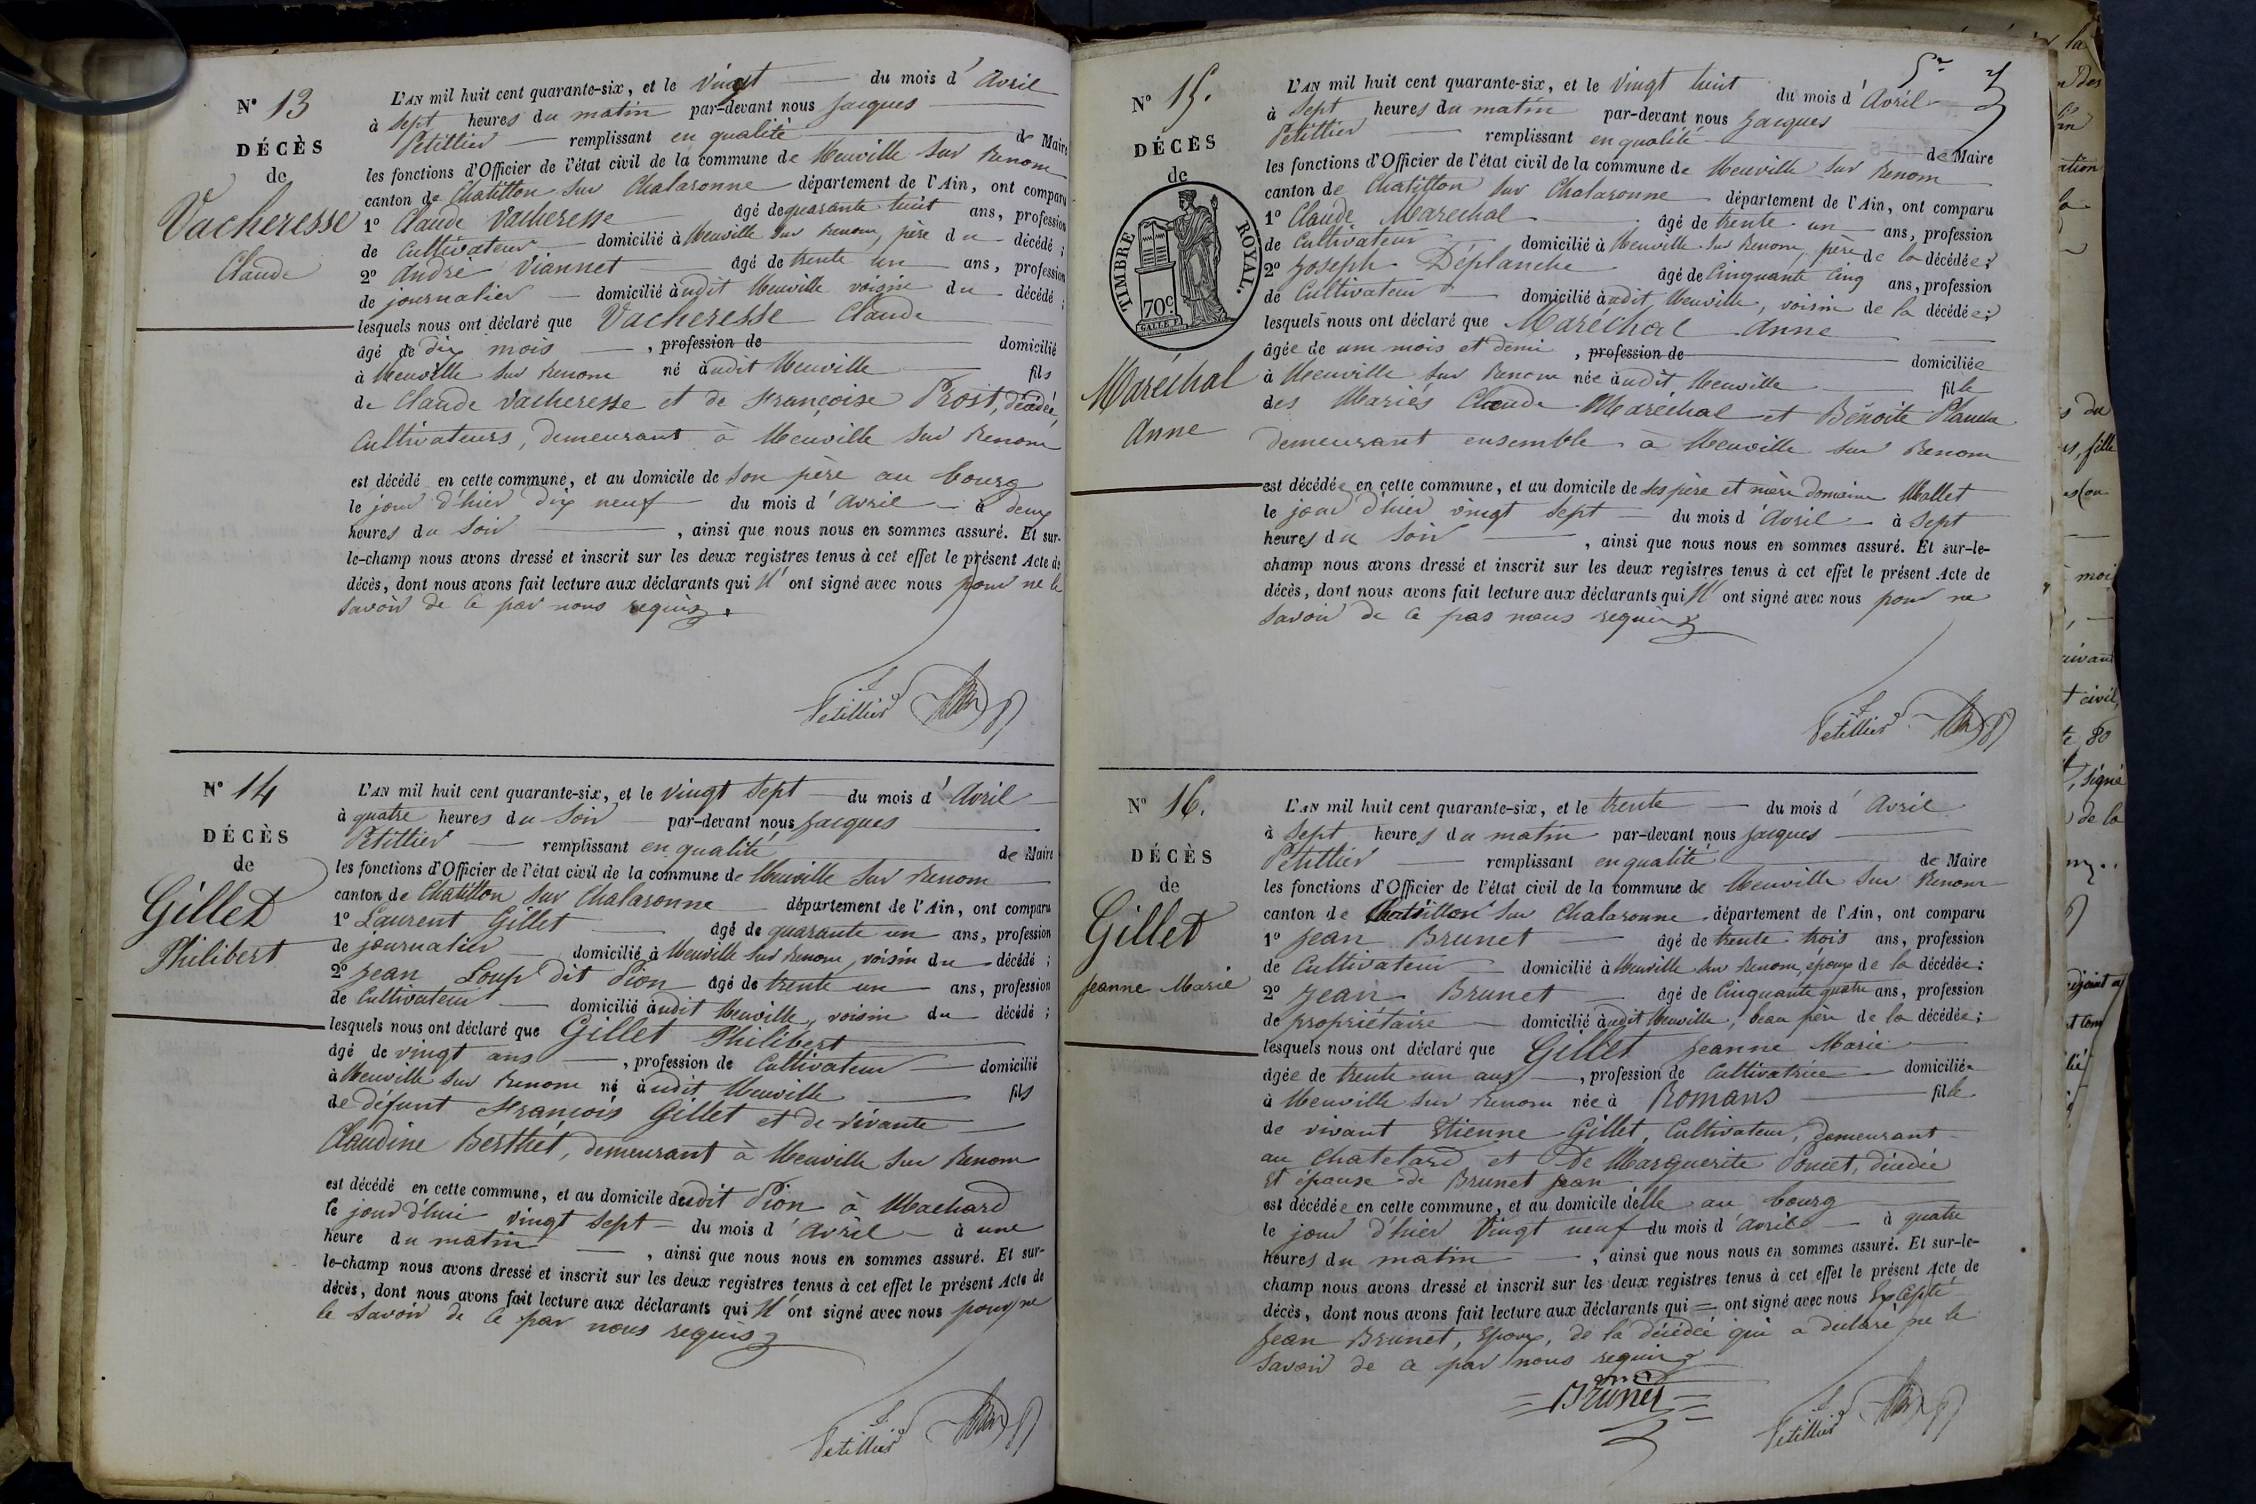 N° 13
DÉCÈS
de
Vacheresse
Claude
L'AN mil huit cent quarante-six, et le vingt du mois d'Avril
à sept heures du matin par-devant nous Jacques
Petillier remplissant en qualité de Maire
les fonctions d'Officier de l'état civil de la commune de Neuville sur Renom
canton de Chatillon sur Chalaronne département de l'Ain, ont comparu
1° Claude Vacheresse âgé de quarante huit ans, profession
de Cultivateur domicilié à Neuville sur Renom, père du décédé ;
2° André Viannet âgé de trente un ans, profession
de journalier domicilié àudit Neuville voisin du décédé ;
lesquels nous ont déclaré que Vacheresse Claude
âgé de dix mois , profession de domicilié
à Neuville sur Renom né àudit Neuville fils
de Claude Vacheresse et de Françoise Prost, décédée,
Cultivateurs, demeurant à Neuville sur Renom
est décédé en cette commune, et au domicile de son père au bourg
le jour d'hier dix neuf du mois d'Avril à deux
heures du soir , ainsi que nous nous en sommes assuré. Et sur-
le-champ nous avons dressé et inscrit sur les deux registres tenus à cet effet le présent Acte de
décès, dont nous avons fait lecture aux déclarants qui N'ont signé avec nous pour ne le
savoir de ce par nous requis.
Petillier
N° 14
DÉCÈS
de
Gillet
Philibert
L'AN mil huit cent quarante-six, et le vingt sept du mois d'Avril
à quatre heures du soir par-devant nous Jacques
Petillier remplissant en qualité de Maire
les fonctions d'Officier de l'état civil de la commune de Neuville sur Renom
canton de Chatillon sur Chalaronne département de l'Ain, ont comparu
1° Laurent Gillet âgé de quarante un ans, profession
de journalier domicilié à Neuville sur Renom, voisin du décédé ;
2° Jean Loup dit Pion âgé de trente un ans, profession
de Cultivateur domicilié àudit Neuville, voisin du décédé ;
lesquels nous ont déclaré que Gillet Philibert
âgé de vingt ans , profession de Cultivateur domicilié
à Neuville sur Renom né àudit Neuville fils
de défunt François Gillet et de vivante
Claudine Berthet, demeurant à Neuville sur Renom
est décédé en cette commune, et au domicile dudit Pion à Machard
le jour d'hui vingt sept du mois d'Avril à une
heure du matin , ainsi que nous nous en sommes assuré. Et sur-
le-champ nous avons dressé et inscrit sur les deux registres tenus à cet effet le présent Acte de
décès, dont nous avons fait lecture aux déclarants qui N'ont signé avec nous pour ne
le savoir de ce par nous requis
Petillier
N° 15.
DÉCÈS
de
TIMBRE ROYAL.
70c.
Maréchal
Anne
L'AN mil huit cent quarante-six, et le vingt huit du mois d'Avril
à sept heures du matin par-devant nous Jacques
Petillier remplissant en qualité de Maire
les fonctions d'Officier de l'état civil de la commune de Neuville sur Renom
canton de Chatillon sur Chalaronne département de l'Ain, ont comparu
1° Claude Marechal âgé de trente un ans, profession
de Cultivateur domicilié à Neuville sur Renom, père de la décédée ;
2° Joseph Déplanche âgé de Cinquante Cinq ans, profession
de Cultivateur domicilié àudit Neuville, voisin de la décédée ;
lesquels nous ont déclaré que Maréchal Anne
âgée de un mois et demi , profession de domiciliée
à Neuville sur Renom née àudit Neuville fille
des Mariés Claude Maréchal et Benoite
demeurant ensemble à Neuville sur Renom
est décédée en cette commune, et au domicile de ses père et mère domaine Mallet
le jour d'hier vingt sept du mois d'Avril à sept
heures du soir , ainsi que nous nous en sommes assuré. Et sur-le-
champ nous avons dressé et inscrit sur les deux registres tenus à cet effet le présent Acte de
décès, dont nous avons fait lecture aux déclarants qui N'ont signé avec nous pour ne
savoir de ce pas nous requis
Petillier
N° 16.
DÉCÈS
de
Gillet
Jeanne Marie
L'AN mil huit cent quarante-six, et le trente du mois d'Avril
à sept heures du matin par-devant nous Jacques
Petillier remplissant en qualité de Maire
les fonctions d'Officier de l'état civil de la commune de Neuville sur Renom
canton de Chatillon sur Chalaronne département de l'Ain, ont comparu
1° Jean Brunet âgé de trente trois ans, profession
de Cultivateur domicilié à Neuville sur Renom, époux de la décédée ;
2° Jean Brunet âgé de Cinquante quatre ans, profession
de propriétaire domicilié àudit Neuville, beau père de la décédée ;
lesquels nous ont déclaré que Gillet Jeanne Marie
âgée de trente un ans , profession de Cultivatrice domiciliée
à Neuville sur Renom née à Romans fille
de vivant Etienne Gillet, Cultivateur, demeurant
au Chatelard et de Marguerite Poncet, décédée
et épouse de Brunet Jean
est décédée en cette commune, et au domicile d'elle au bourg
le jour d'hier Vingt neuf du mois d'Avril à quatre
heures du matin , ainsi que nous nous en sommes assuré. Et sur-le-
champ nous avons dressé et inscrit sur les deux registres tenus à cet effet le présent Acte de
décès, dont nous avons fait lecture aux déclarants qui ont signé avec nous Excepté
Jean Brunet, Epoux, de la décédée qui a déclaré ne le
savoir de ce par nous requis
Brunet
Petillier